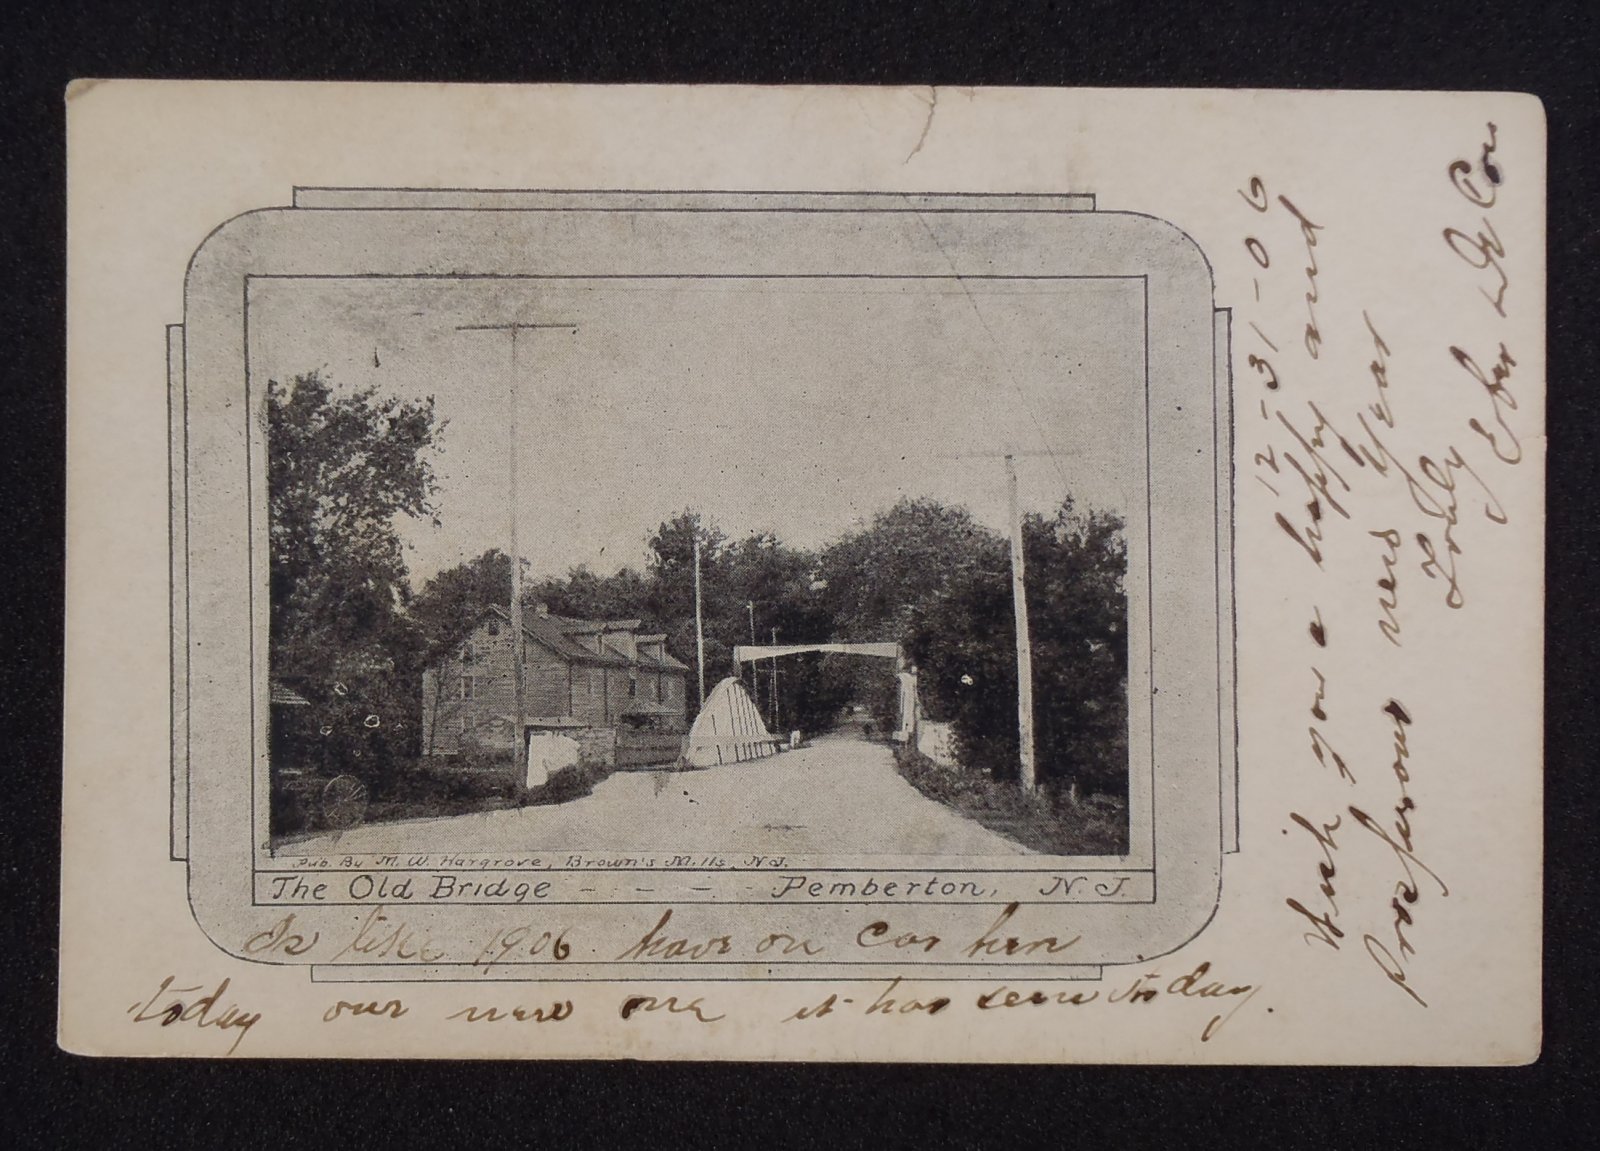 Pub. By M. W. Hargrove, Brown's Mills, N.J.
The Old Bridge - - - - Pemberton, N. J.
like 1906 have on car
today our new one it has today.
12-31-06
Wish you a happy and
prosperous new Year
Truly